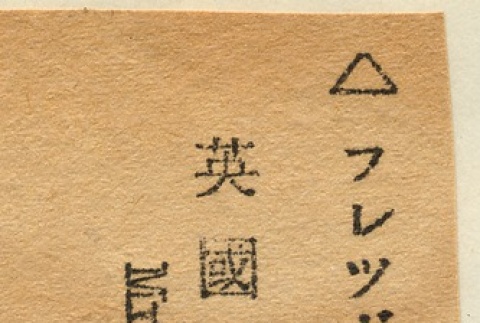 △フレッド
英國